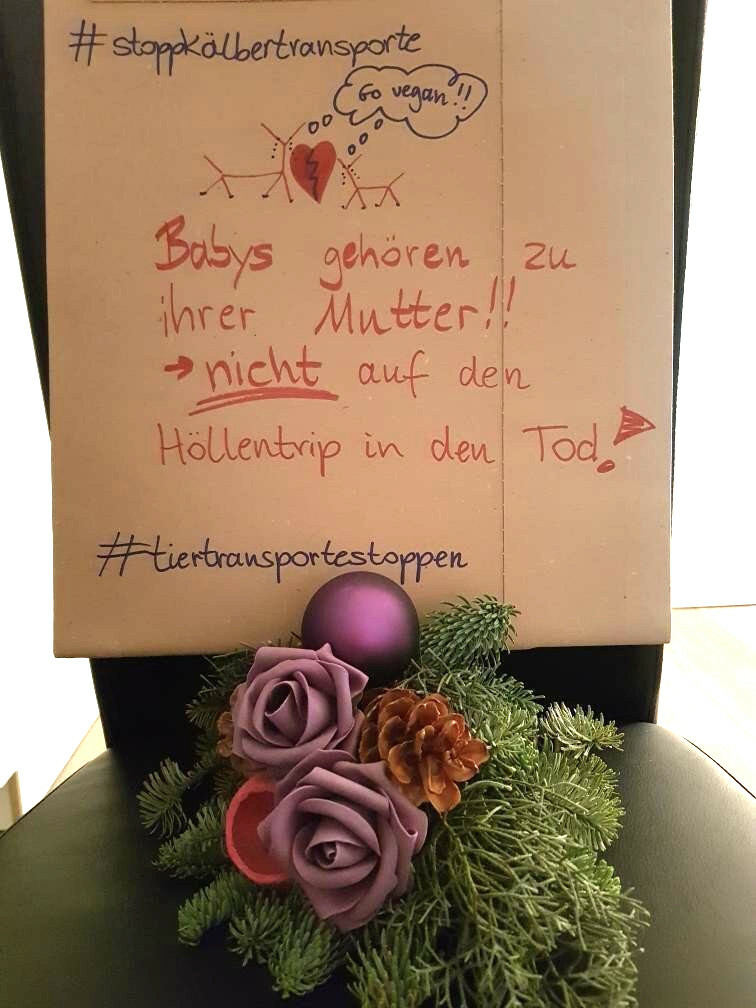 #stoppkälbertransporte
Go vegan!!
Babys gehören zu
ihrer Mutter!!
→ nicht auf den
Höllentrip in den Tod!
#tiertransportestoppen